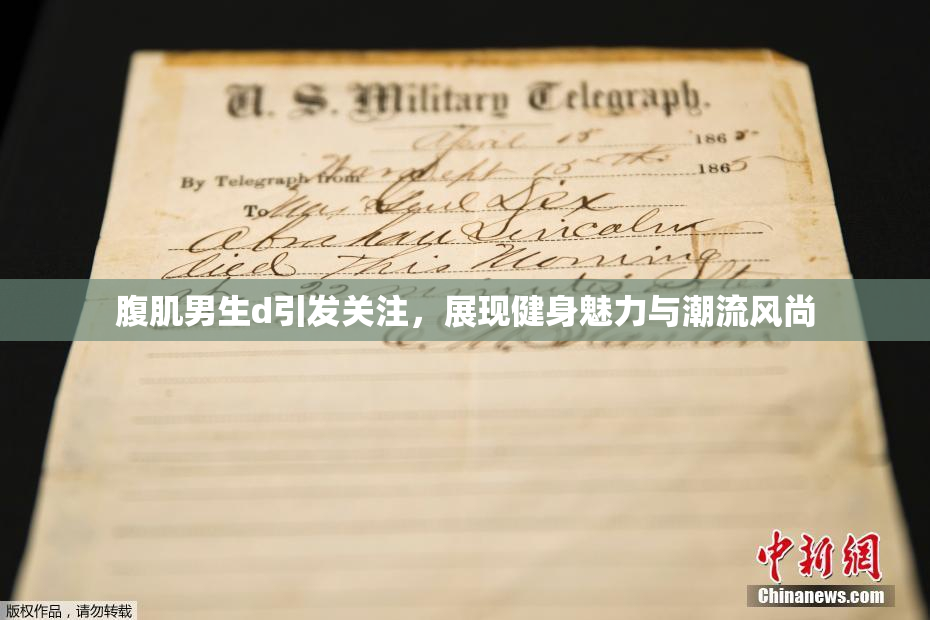 U. S. Military Telegraph.
April 15 1865
By Telegraph from War Dept 15th 1865
To Maj Genl Dix
Abraham Lincoln
died This Morning
at 22 minutes after
腹肌男生d引发关注，展现健身魅力与潮流风尚
E. M. Stanton
中新網
Chinanews.com
版权作品，请勿转载